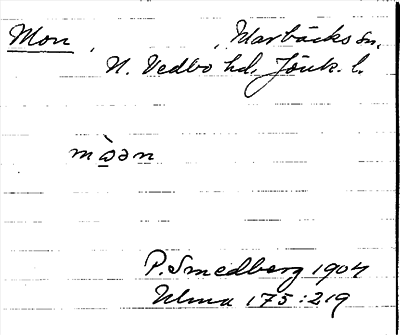 Mon , , Marbäcks sn,
N. Vedbo hd, Jönk. l.
mòən
P. Smedberg 1904
Ulma 175:219